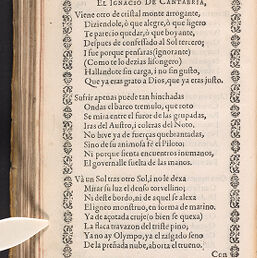 EL IGNACIO DE CANTABRIA,
Viene otro de cristal monte arrogante,
Diziendole, ó que alegre, ó que ligero
Te parecio quedar, ó que boyante,
Despues de confessado al Sol tercero;
I fue porque pensaras (ignorante)
(Como te lo dezias lisongero)
Hallandote sin carga, i no sin gusto,
Que ya eras grato a Dios, que ya eras justo.
Sufrir apenas puede tan hinchadas
Ondas el bareo tremulo, que roto
Se mira entre el furor de las grupadas,
Iras del Austro, i coleras del Noto,
No bive ya de fuerças quebrantadas,
Sino de su animosa fè el Piloto;
Ni porque sienta encuentros inumanos,
El governalle suelta de las manos.
Và un Sol tras otro Sol, i no le dexa
Mirar su luz el denso torvellino;
Ni deste bordo, ni de aquel se alexa
El ligneo monstruo, en forma de marino.
Ya de açotada cruje (o bien se quexa)
La flaca travazon del triste pino,
Ya no ay Olympo, ya el salzado seno
De la preñada nube, aborta el trueno.
Con